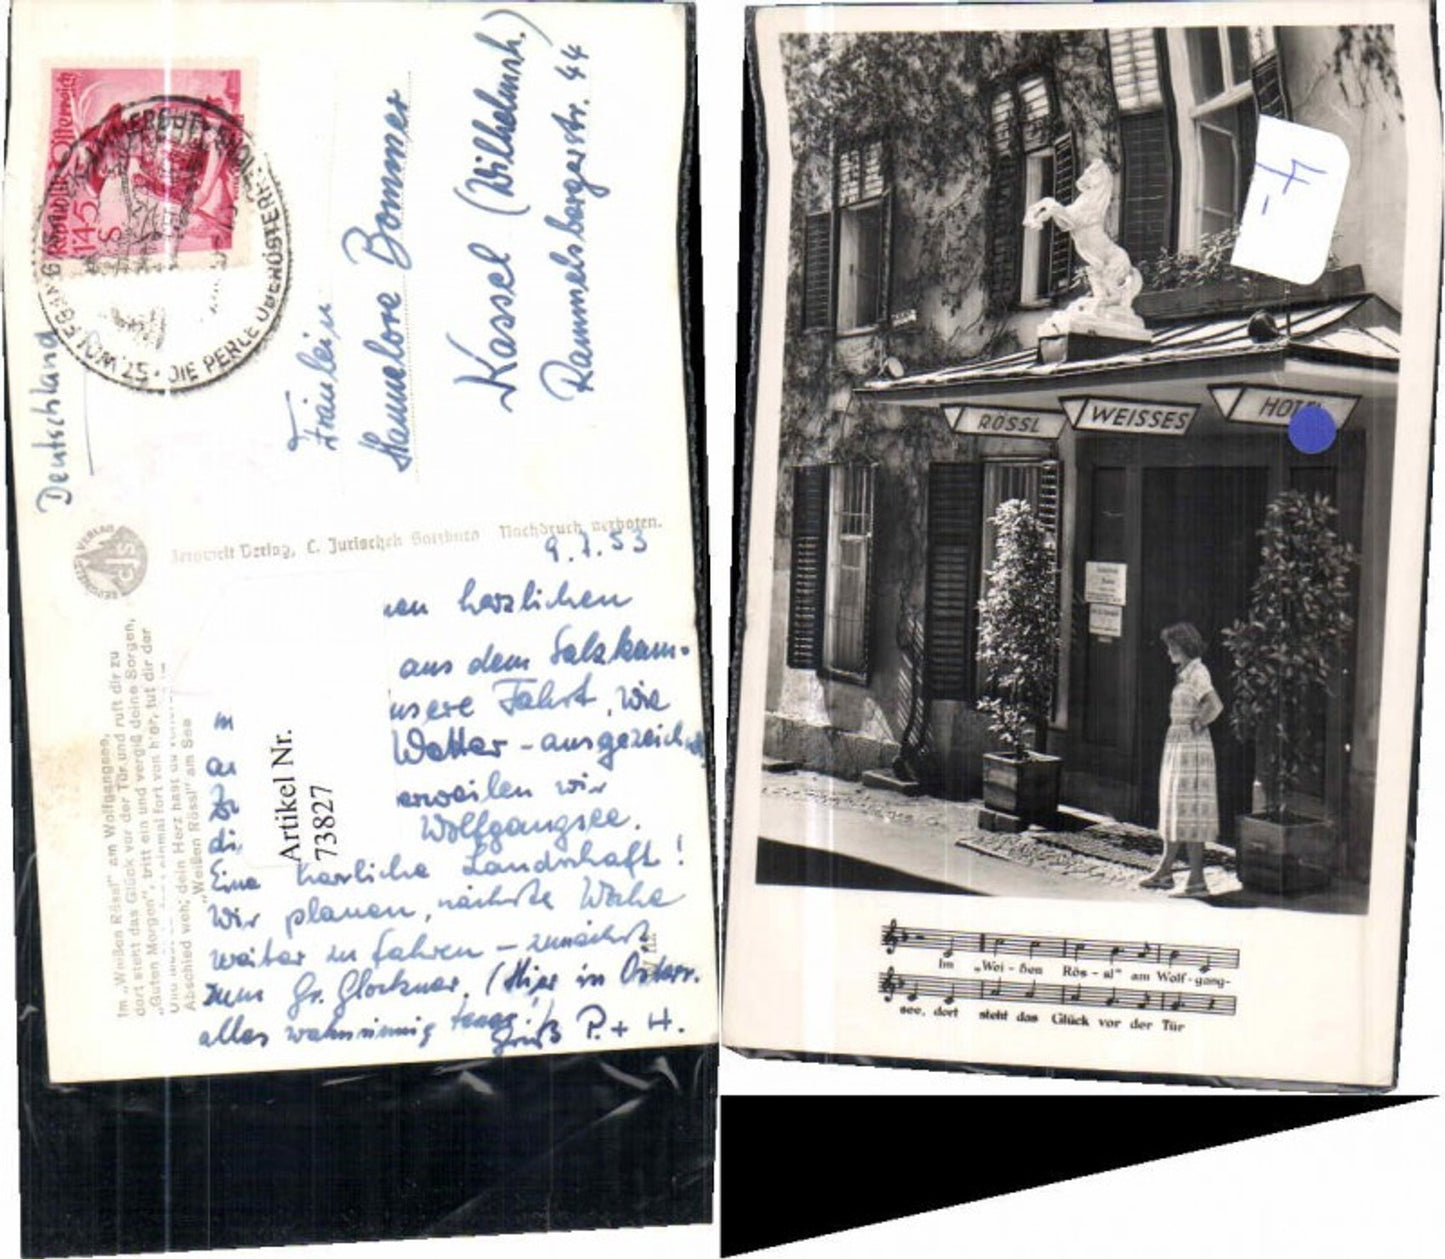 Österreich
1.45
S
DIE PERLE OBERÖSTER
Deutschland
Fräulein
Hannelore Bommer
Kassel (Wilhelmsh.)
Rammelsbergerstr. 44
VERLAG
CJS
Verlag, C. Jurischek Salzburg Nachdruck verboten.
9.7.53
herzlichen
aus dem Salzkam-
Fahrt, wie
Wetter - ausgezeichnet
wir
Wolfgangsee.
Eine herrliche Landschaft!
Wir planen, nächste Woche
weiter zu fahren - zunächst
zum Gr. Glockner. (Hier in Österr.
alles wahnsinnig teuer!)
Gruß P. + H.
Artikel Nr.
73827
Im „Weißen Rössl" am Wolfgangsee,
dort steht das Glück vor der Tür und ruft dir zu
„Guten Morgen", tritt ein und vergiß deine Sorgen,
einmal fort von hier, tut dir der
Abschied weh; dein Herz hast du
„Weißen Rössl" am See
4-
RÖSSL
WEISSES
HOTEL
Im „Wei - ßen Rös - sl" am Wolf - gang-
see, dort steht das Glück vor der Tür